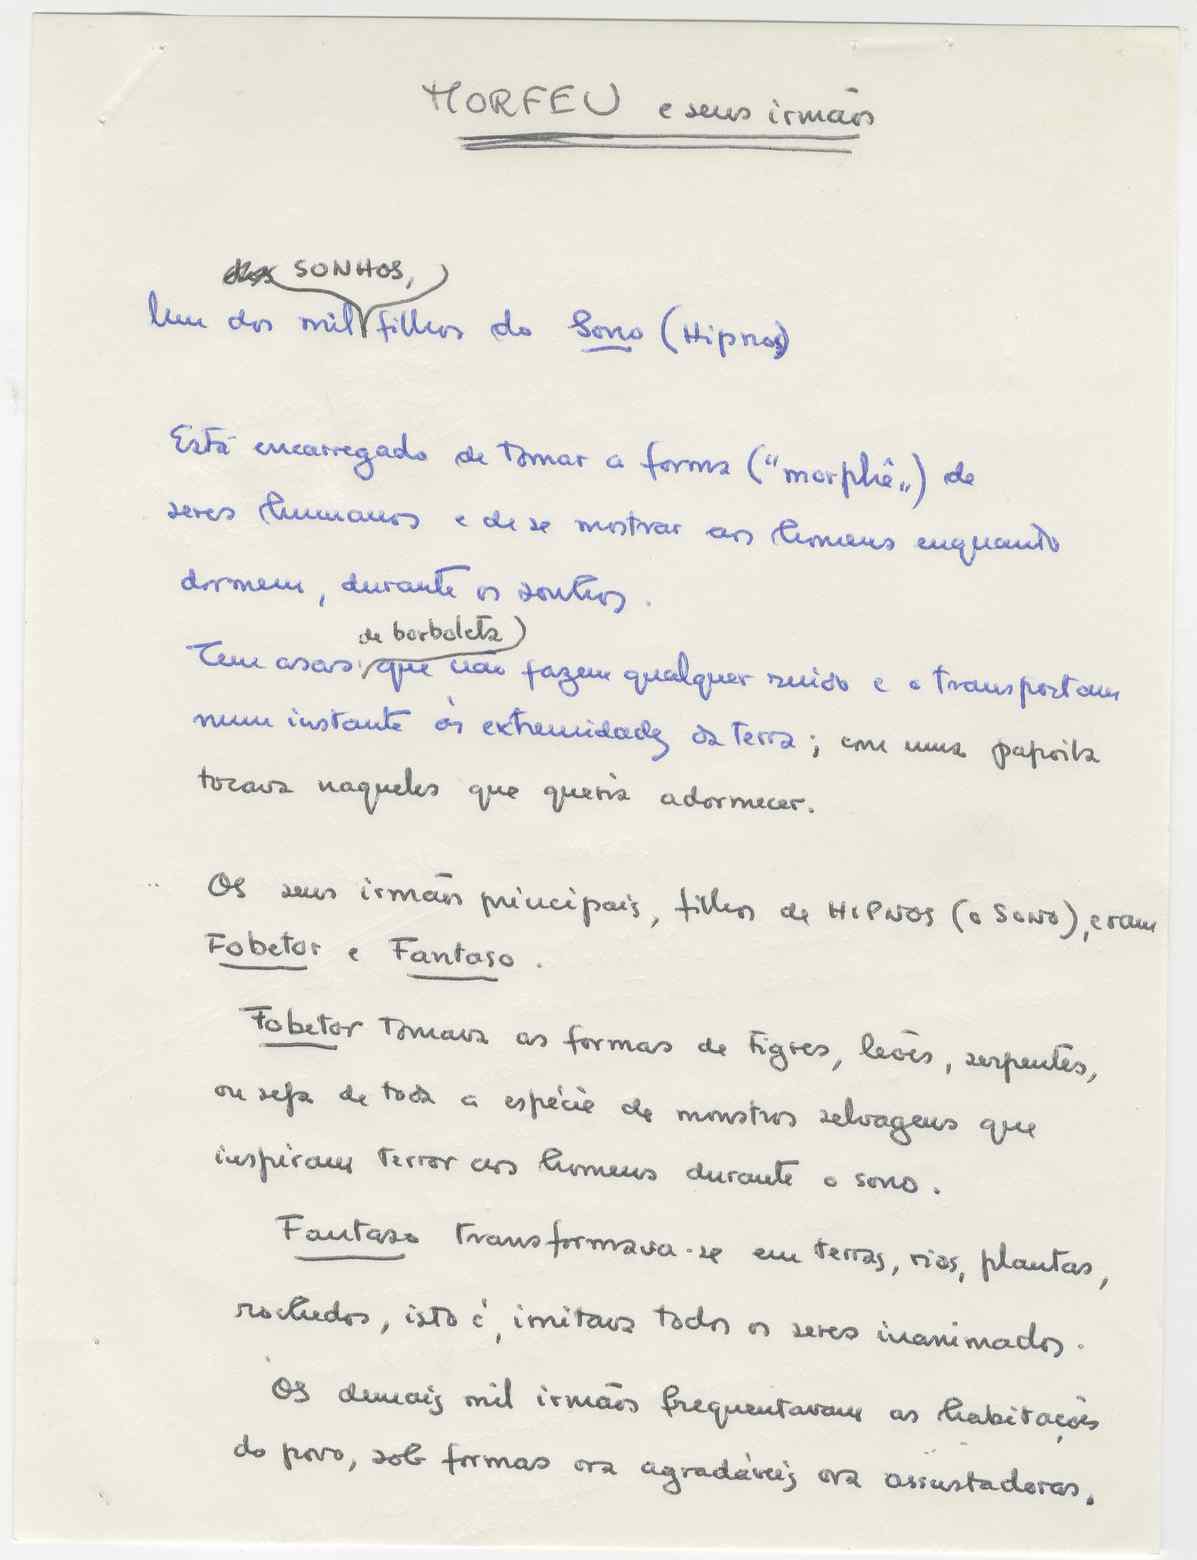 MORFEU e seus irmãos
SONHOS,
Um dos mil filhos do Sono (Hipnos)
Está encarregado de tomar a forma ("morphê") de
seres humanos e de se mostrar aos homens enquanto
dormem, durante os sonhos.
de borboleta
Tem asas, que não fazem qualquer ruído e o transportam
num instante às extremidades da terra; com uma papoila
tocava naqueles que queria adormecer.
Os seus irmãos principais, filhos de HIPNOS (o SONO), eram
Fobetor e Fantaso.
Fobetor tomava as formas de tigres, leões, serpentes,
ou seja de toda a espécie de monstros selvagens que
inspiram terror aos homens durante o sono.
Fantaso transformava-se em terras, rios, plantas,
rochedos, isto é, imitava todos os seres inanimados.
Os demais mil irmãos frequentavam as habitações
do povo, sob formas ora agradáveis ora assustadoras.